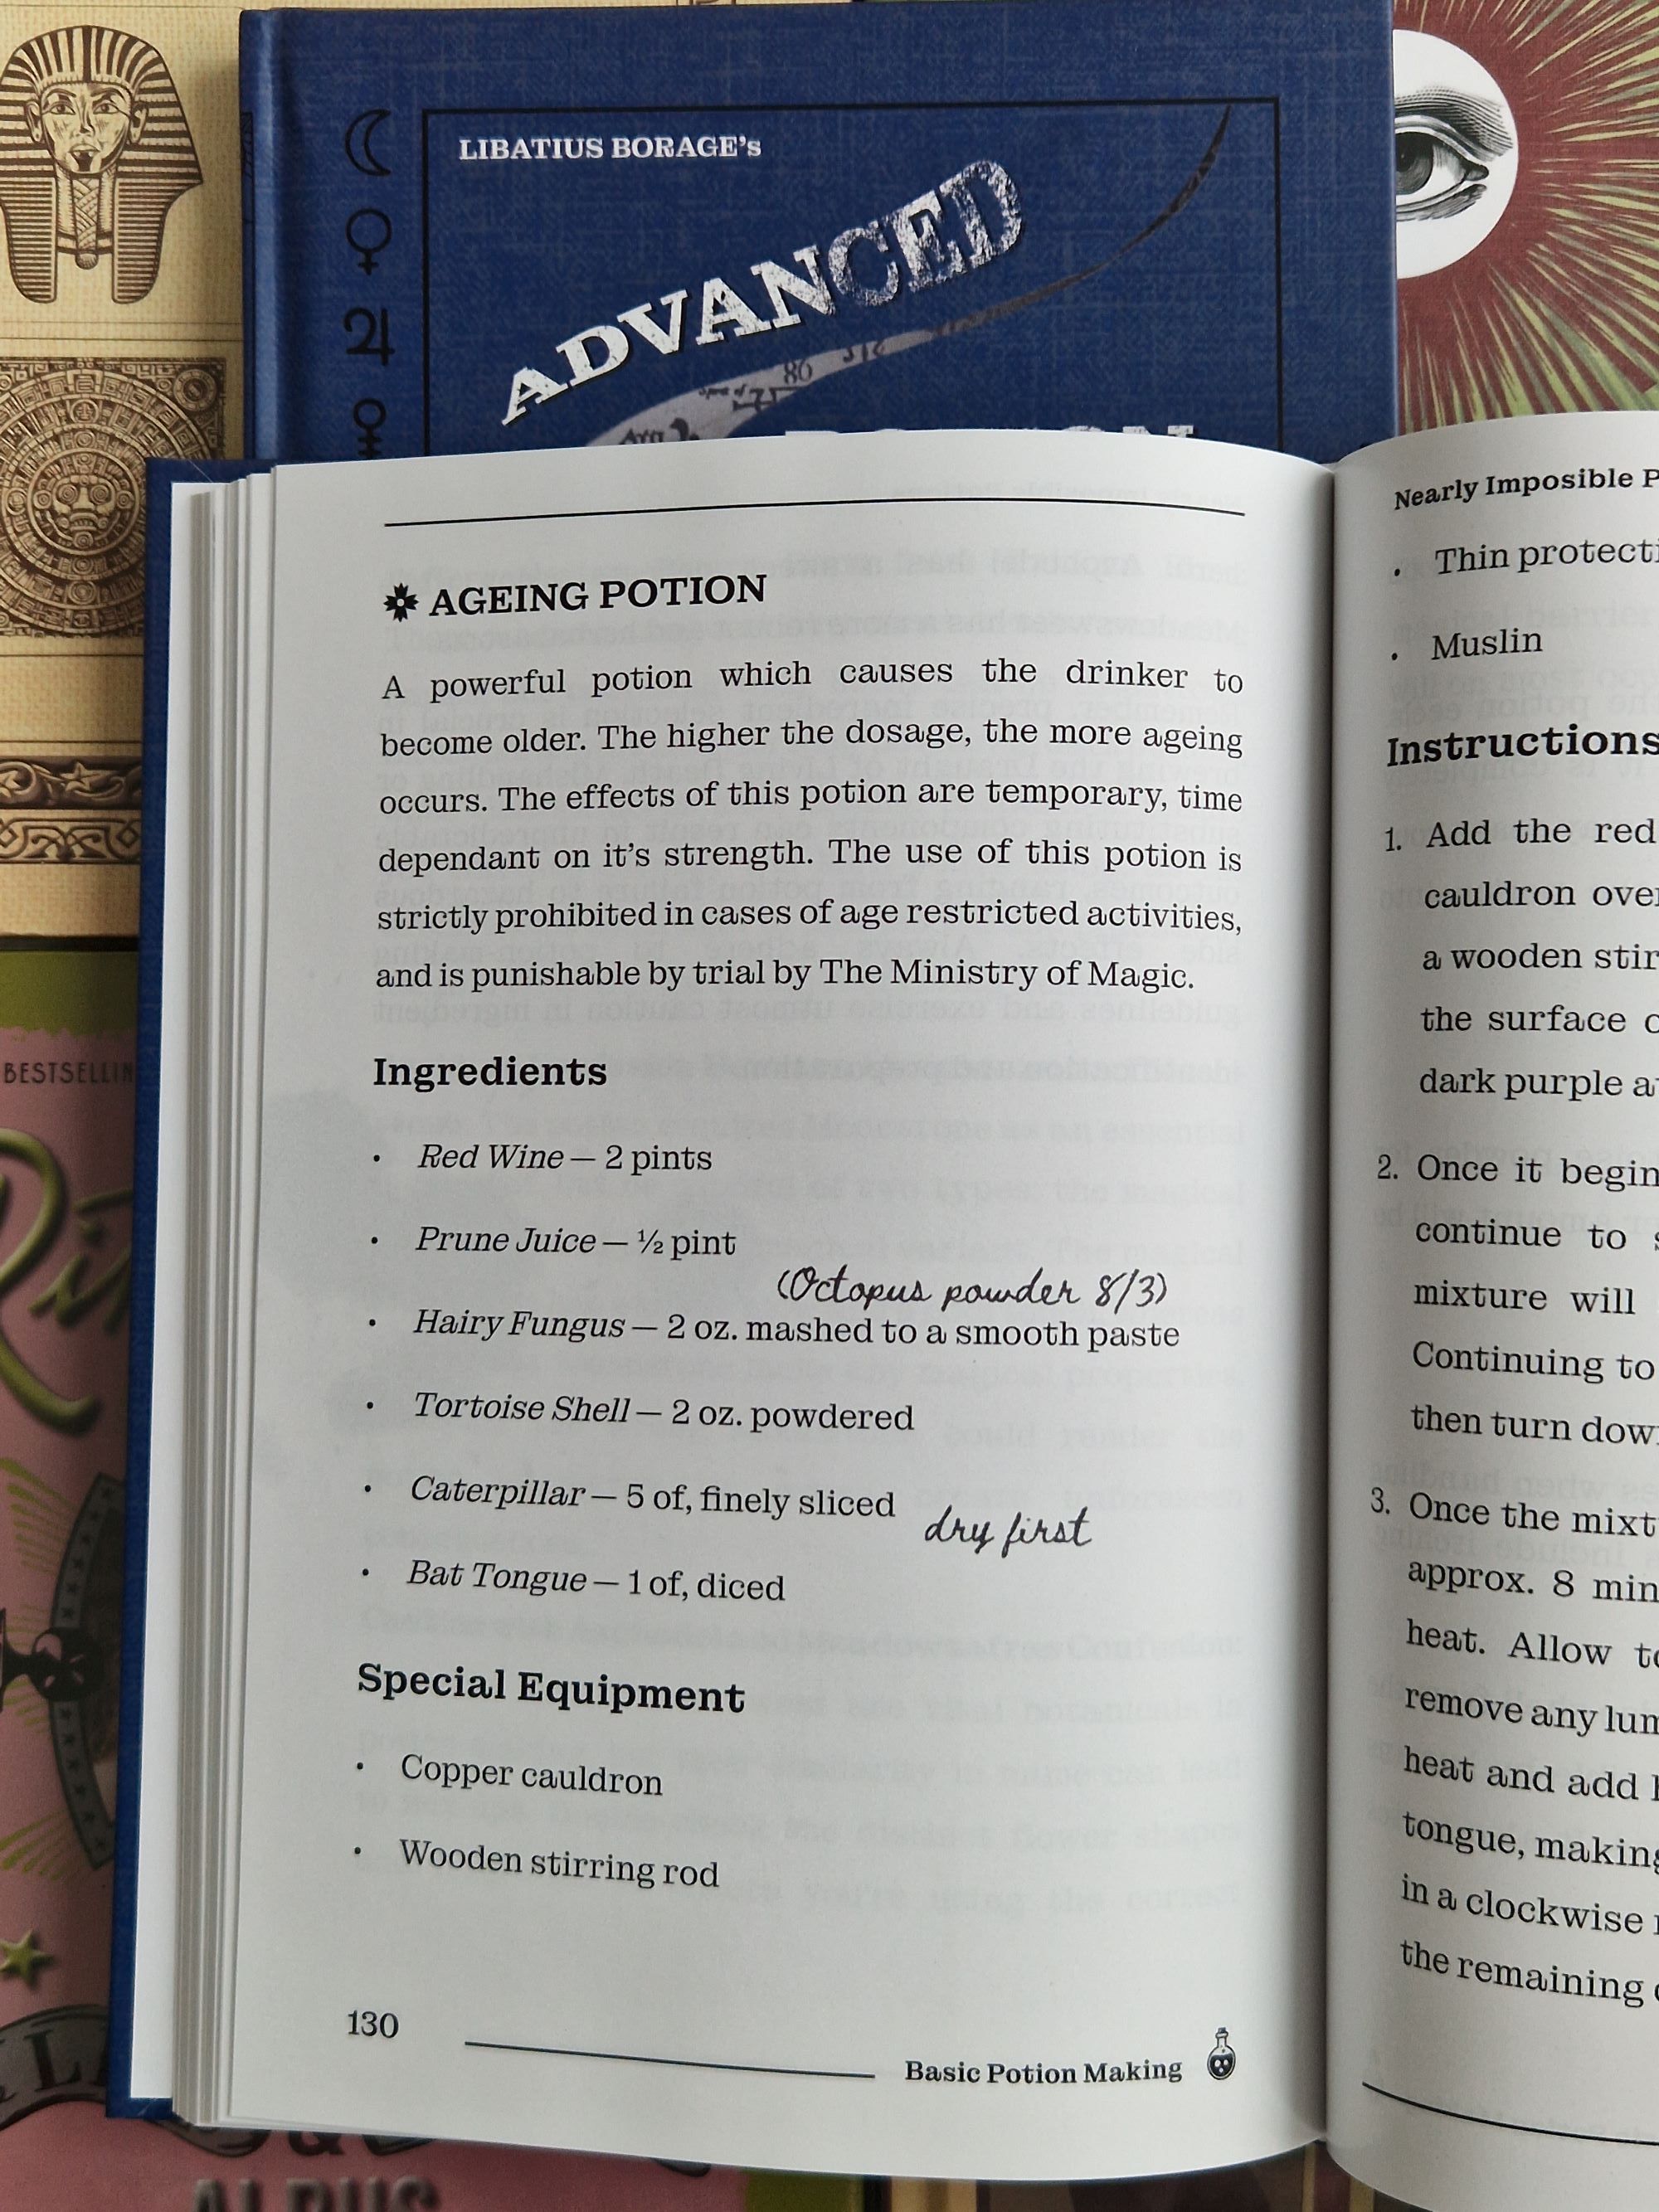 LIBATIUS BORAGE's
ADVANCED
AGEING POTION
A powerful potion which causes the drinker to
become older. The higher the dosage, the more ageing
occurs. The effects of this potion are temporary, time
dependant on it's strength. The use of this potion is
strictly prohibited in cases of age restricted activities,
and is punishable by trial by The Ministry of Magic.
Ingredients
• Red Wine — 2 pints
• Prune Juice — ½ pint
(Octopus powder 8/3)
• Hairy Fungus — 2 oz. mashed to a smooth paste
• Tortoise Shell — 2 oz. powdered
• Caterpillar — 5 of, finely sliced
dry first
• Bat Tongue — 1 of, diced
Special Equipment
• Copper cauldron
• Wooden stirring rod
130
Basic Potion Making
Nearly Imposible P
• Thin protecti
• Muslin
Instructions
1. Add the red
cauldron over
a wooden stir
the surface
dark purple
2. Once it begin
continue to
mixture will
Continuing to
then turn dow
3. Once the mixt
approx. 8 min
heat. Allow
remove any lum
heat and add
tongue, making
in a clockwise
the remaining
BESTSELLIN
ALBUS